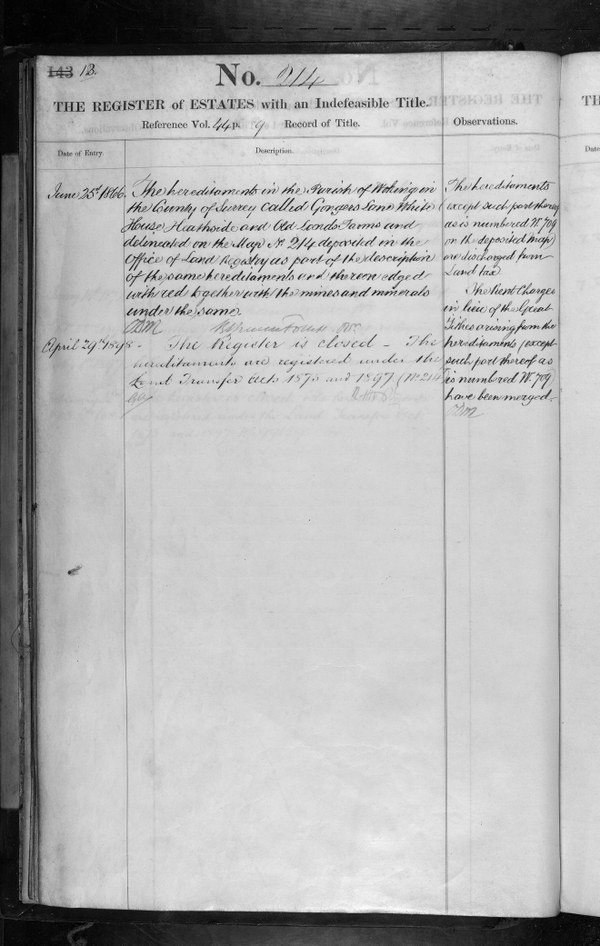 143 13.
No. 214
THE REGISTER of ESTATES with an Indefeasible Title.
Reference Vol. 44 p. 9 Record of Title.
Observations.
Date of Entry.
Description.
June 25th 1866.
The hereditaments in the Parish of Woking in
the County of Surrey called Gongers Lane White
House Heathside and Old Lands Farms and
delineated on the Map No. 214 deposited in the
Office of Land Registry as part of the description
of the same hereditaments and thereon edged
with red together with the mines and minerals
under the same.
April 29th 1898.
- The Register is closed - The
hereditaments are registered under the
Land Transfer Acts 1875 and 1897 (No. 214
The hereditaments
(except such part thereof
as is numbered No. 709
on the deposited map)
are discharged from
Land tax
The Rent Charges
in lieu of the Great
Tithes arising from the
hereditaments (except
such part thereof as
is numbered No. 709
have been merged.